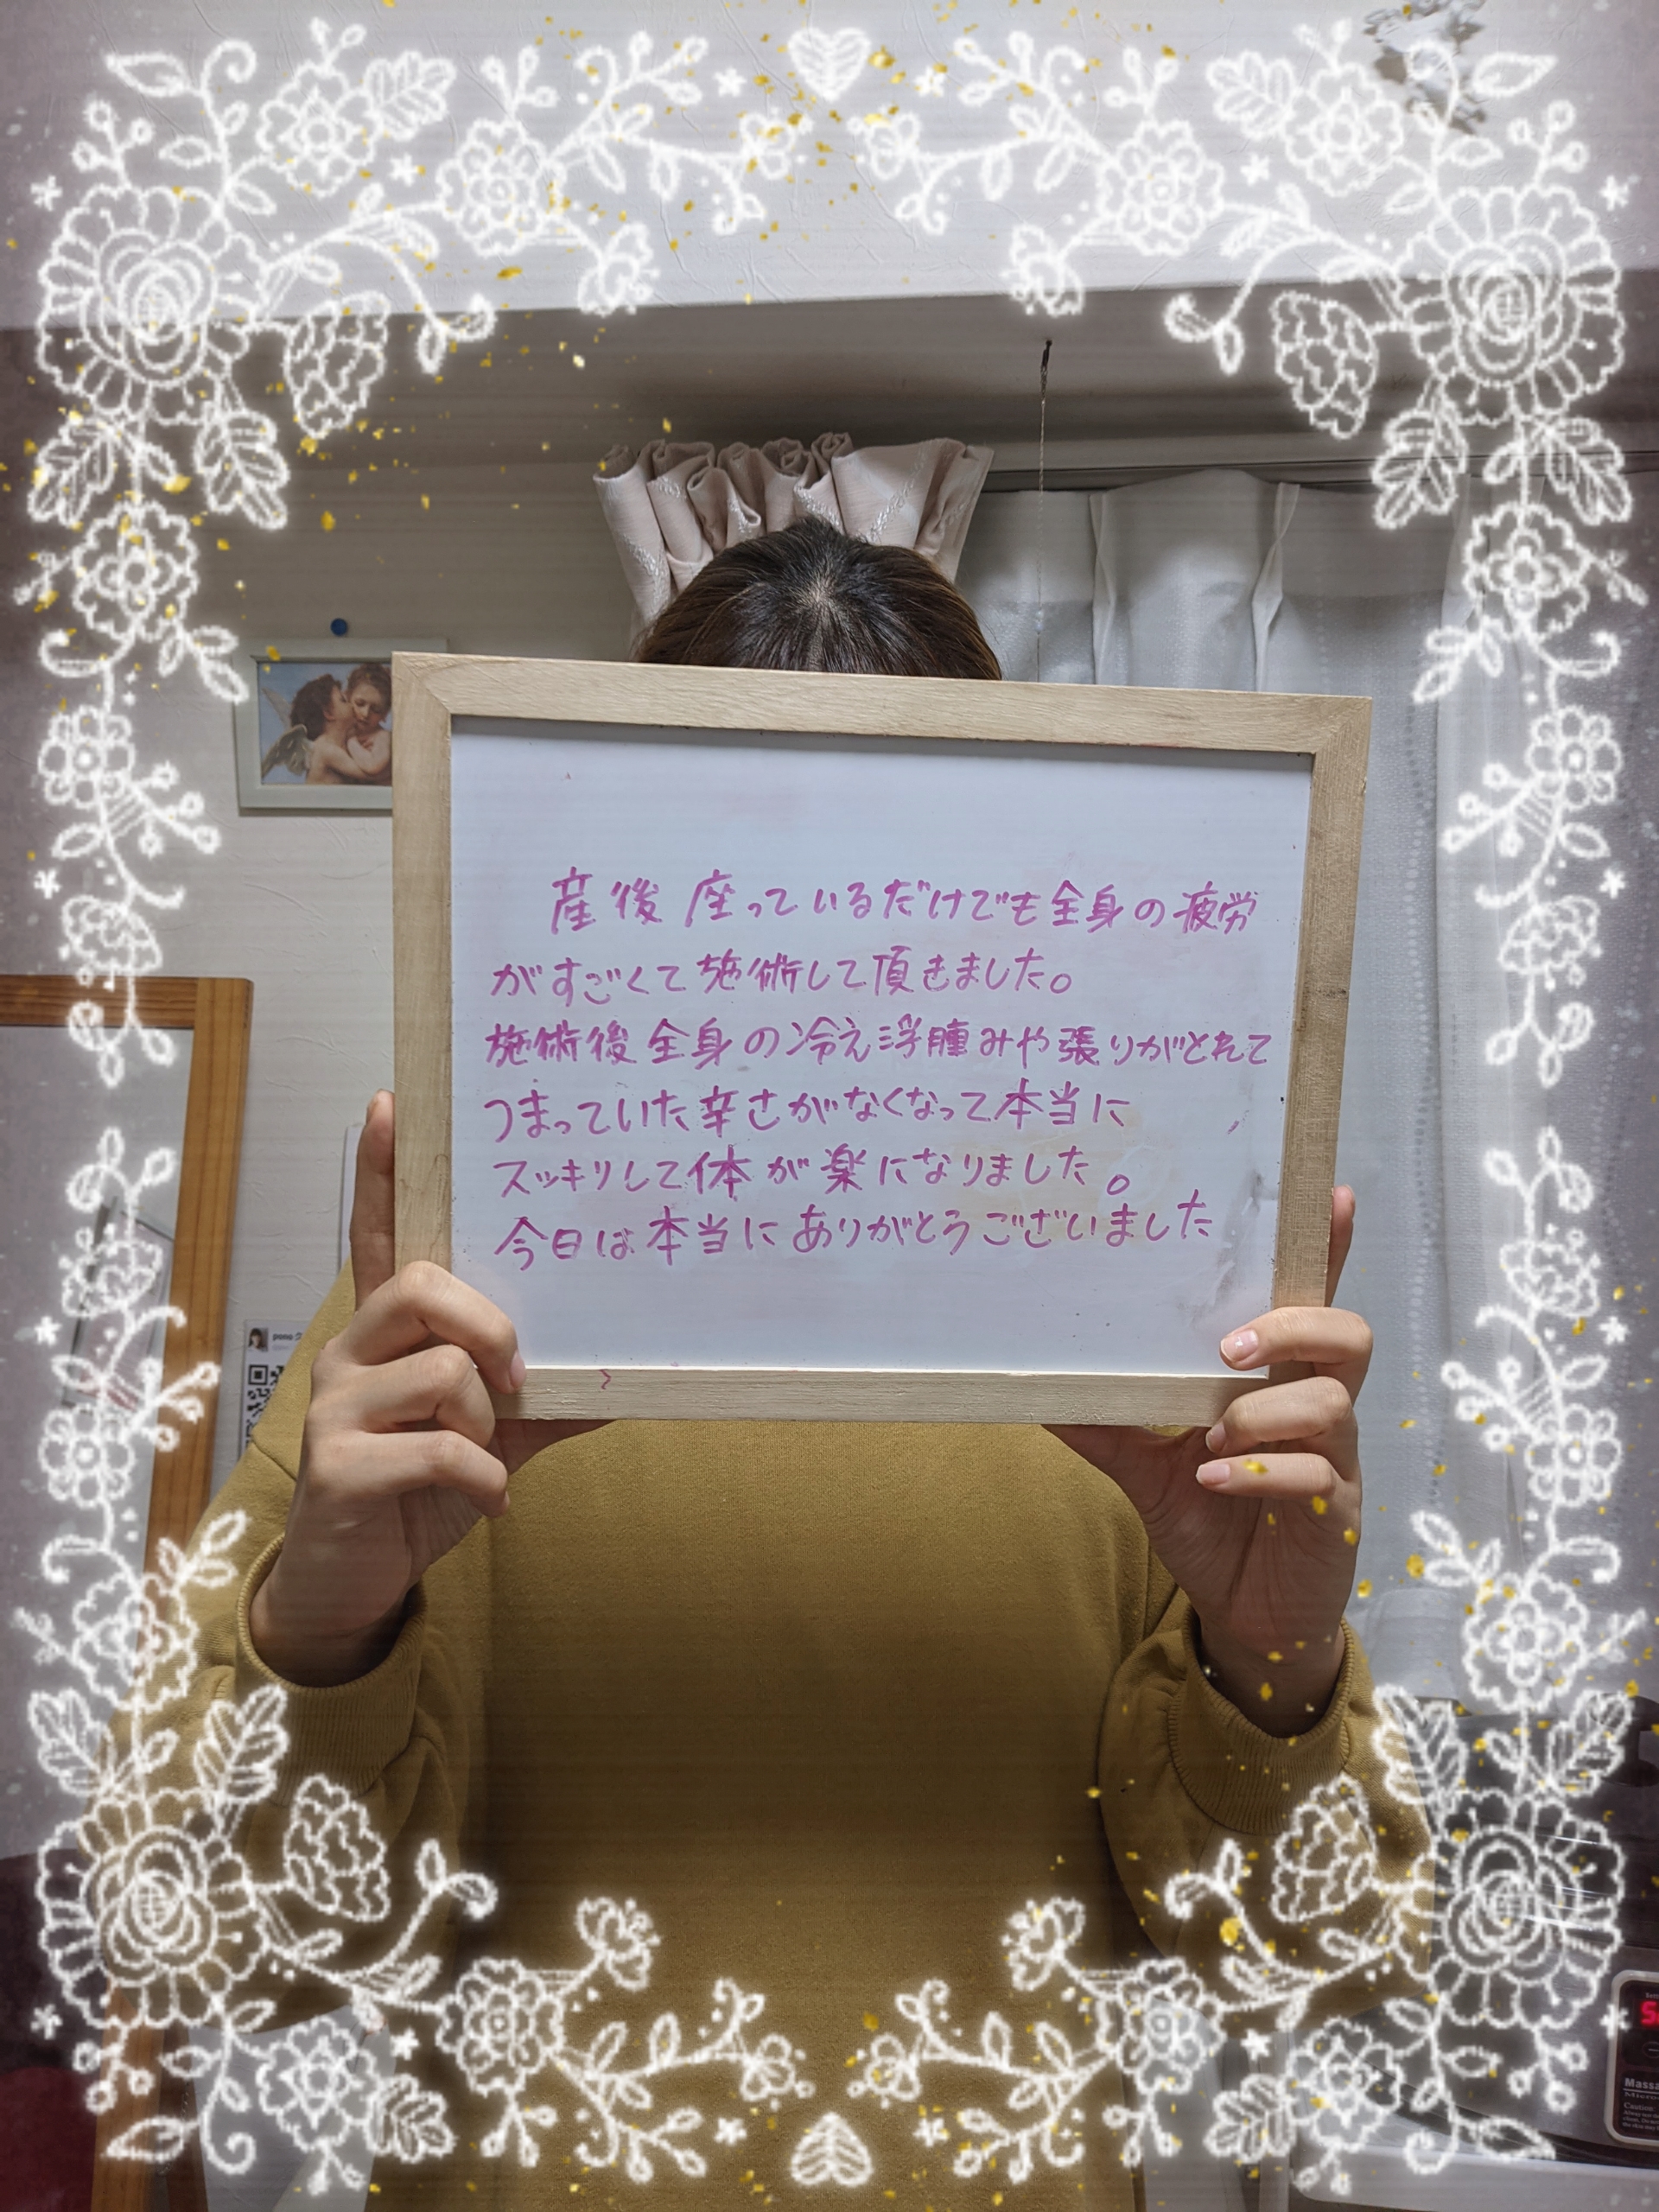 産後座っているだけでも全身の疲労
がすごくて施術して頂きました。
施術後全身の冷え浮腫みや張りがとれて
つまっていた辛さがなくなって本当に
スッキリして体が楽になりました。
今日は本当にありがとうございました
pono
Massa
Caution